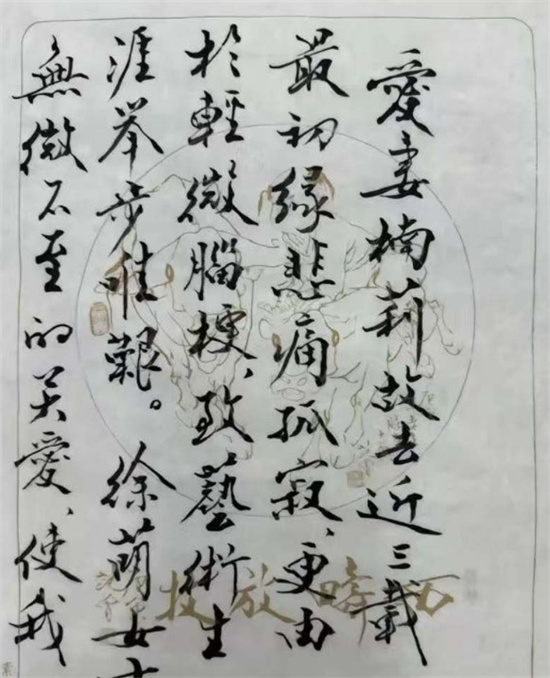 愛妻楠莉故去近三載
最初緣悲痛孤寂、更由
於輕微腦梗、致藝術生
涯举步唯艱。徐萌女士
無微不至的关愛、使我
西疇放牧